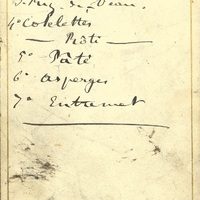 de Veau.
4º Cotelettes
— Rôti —
5º Pâté
6º asperges
7º Entremet